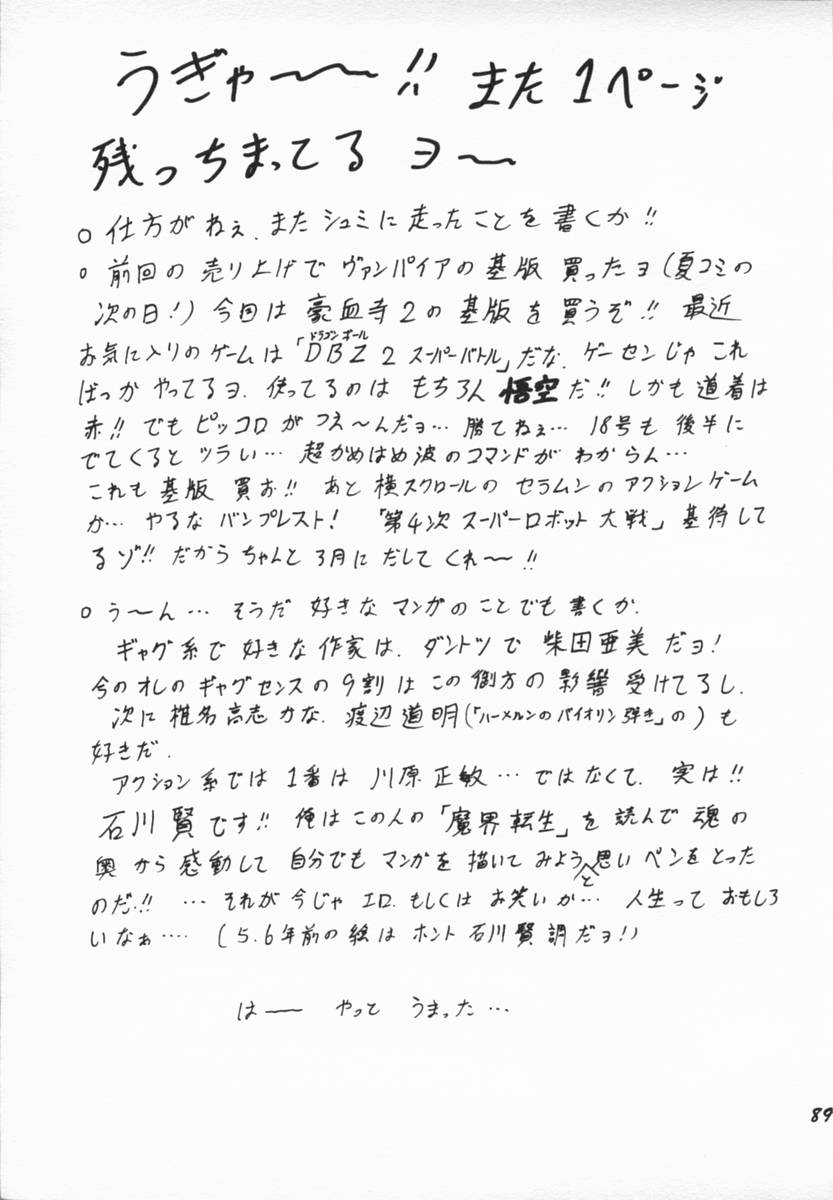 うぎゃ〜〜!! また 1ページ
残っちまってる ヨ〜
○ 仕方がねぇ、また シュミに 走ったことを 書くか!!
○ 前回の 売り上げで ヴァンパイアの 基版 買ったヨ(夏コミの
次の日!) 今回は 豪血寺2の 基版を 買うぞ!! 最近
お気に入りのゲームは「DBZ2 スーパーバトル」だな、ゲーセンじゃ これ
ドラゴンボール
ばっか やってるヨ、使ってるのは もちろん 悟空だ!! しかも 道着は
赤!! でも ピッコロ が つえ〜んだョ… 勝てねぇ… 18号も 後半に
でてくると ツラい… 超かめはめ波のコマンドが わからん…
これも 基版 買お!! あと 横スクロールの セラムンのアクションゲーム
か… やるな バンプレスト! 「第4次 スーパーロボット 大戦」 基待して
るゾ!! だから ちゃんと 3月に だして くれ〜!!
○ う〜ん… そうだ 好きな マンガのことでも 書くか、
ギャグ系で 好きな 作家は、ダントツで 柴田亜美 だョ!
今のオレの ギャグセンスの 9割は この 御方の 影響 受けてるし、
次に 椎名高志かな、渡辺道明(「ハーメルンのバイオリン弾き」の) も
好きだ、
アクション系では 1番は 川原正敏… ではなくて、実は!!
石川賢です!! 俺は この人の「魔界転生」を 読んで 魂の
奥から 感動して 自分でも マンガを 描いて みようと思い ペンを とった
のだ!! … それが 今じゃ エロ、もしくは お笑いか… 人生って おもしろ
いなぁ…. (5、6年前の 絵は ホント 石川賢調だョ!)
は── やっと うまった…
89